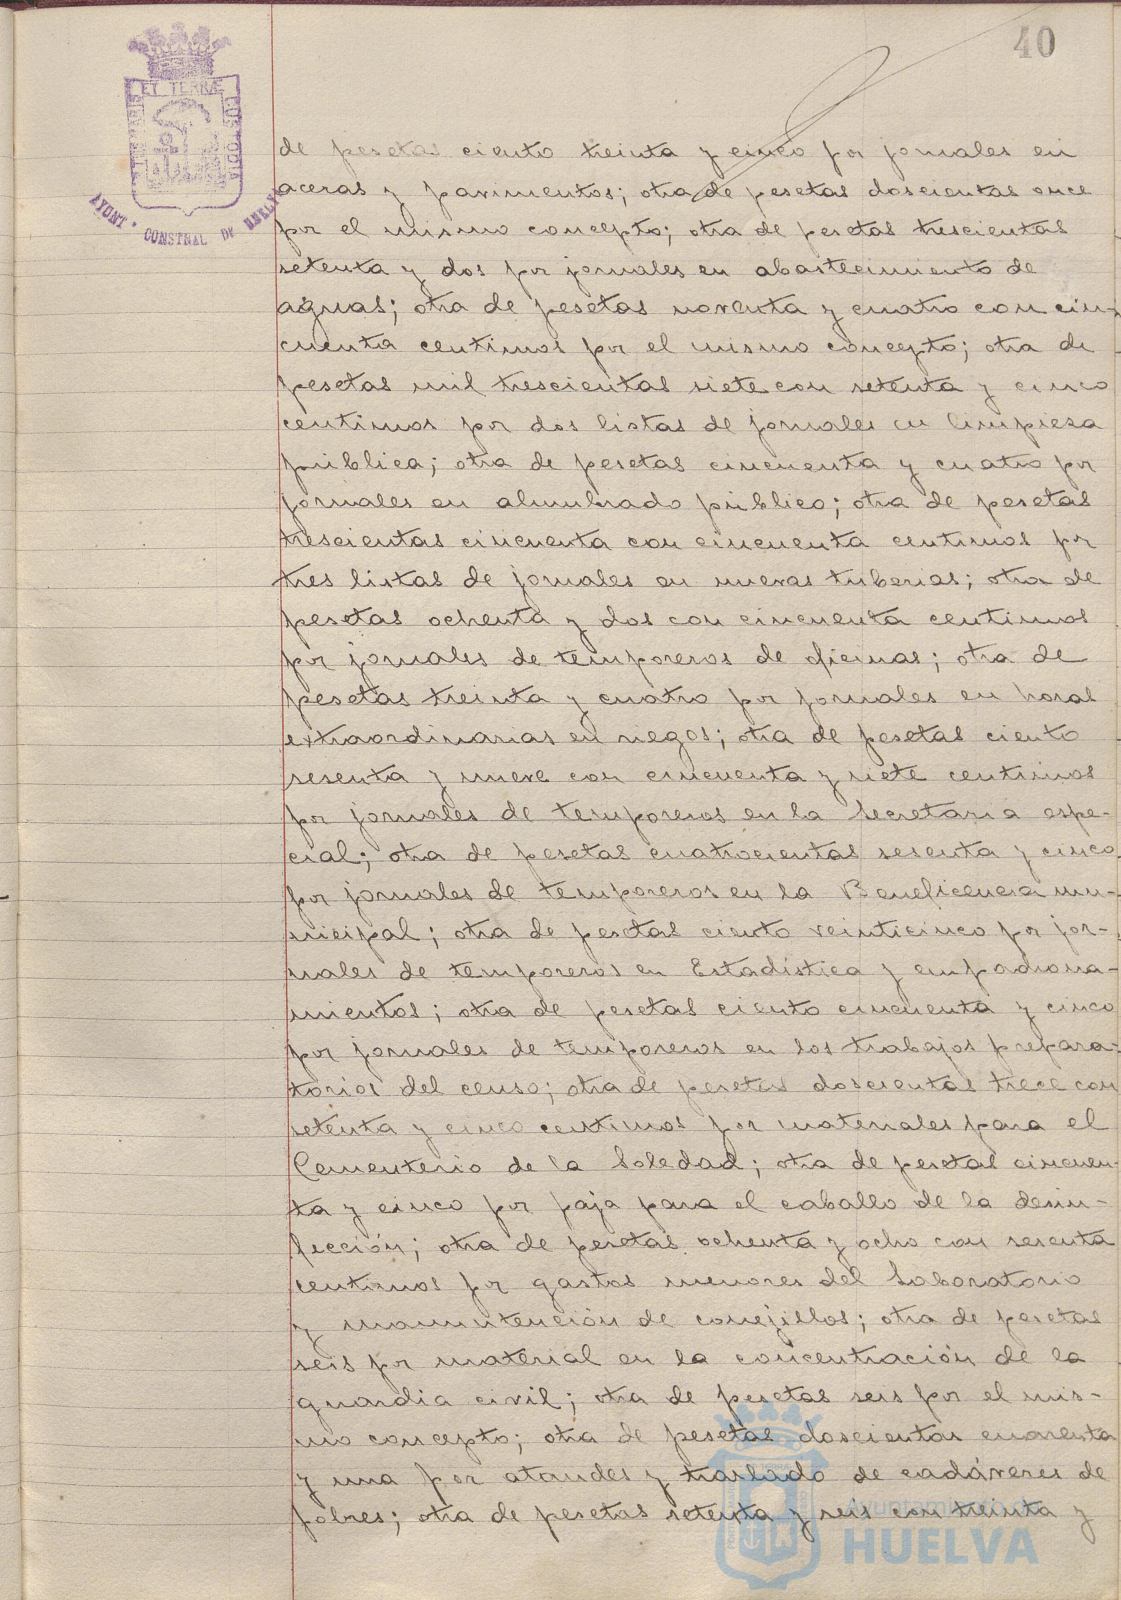 40
ET TERRÆ
AYONT * CONSTNAL DE HUELVA
de pesetas ciento treinta y cinco por jornales en
aceras y pavimentos; otra de pesetas doscientas once
por el mismo concepto; otra de pesetas trescientas
setenta y dos por jornales en abastecimiento de
aguas; otra de pesetas noventa y cuatro con cin-
cuenta centimos por el mismo concepto; otra de
pesetas mil trescientas siete con setenta y cinco
centimos por dos listas de jornales en limpieza
pública; otra de pesetas cincuenta y cuatro por
jornales en alumbrado público; otra de pesetas
trescientas cincuenta con cincuenta centimos por
tres listas de jornales en nuevas tuberias; otra de
pesetas ochenta y dos con cincuenta centimos
por jornales de temporeros de oficinas; otra de
pesetas treinta y cuatro por jornales en horas
extraordinarias en riegos; otra de pesetas ciento
sesenta y nueve con cincuenta y siete centimos
por jornales de temporeros en la Secretaria espe-
cial; otra de pesetas cuatrocientas sesenta y cinco
por jornales de temporeros en la Beneficencia mu-
nicipal; otra de pesetas ciento veinticinco por jor-
nales de temporeros en Estadística y empadrona-
mientos; otra de pesetas ciento cincuenta y cinco
por jornales de temporeros en los trabajos prepara-
torios del censo; otra de pesetas doscientas trece con
setenta y cinco centimos por materiales para el
Cementerio de la Soledad; otra de pesetas cincuen-
ta y cinco por paja para el caballo de la desin-
fección; otra de pesetas ochenta y ocho con sesenta
centimos por gastos menores del Laboratorio
y manutención de conejillos; otra de pesetas
seis por material en la concentración de la
guardia civil; otra de pesetas seis por el mis-
mo concepto; otra de pesetas doscientas cuarenta
y una por ataudes y traslado de cadáveres de
pobres; otra de pesetas setenta y seis con treinta y
Ayuntamiento de
HUELVA